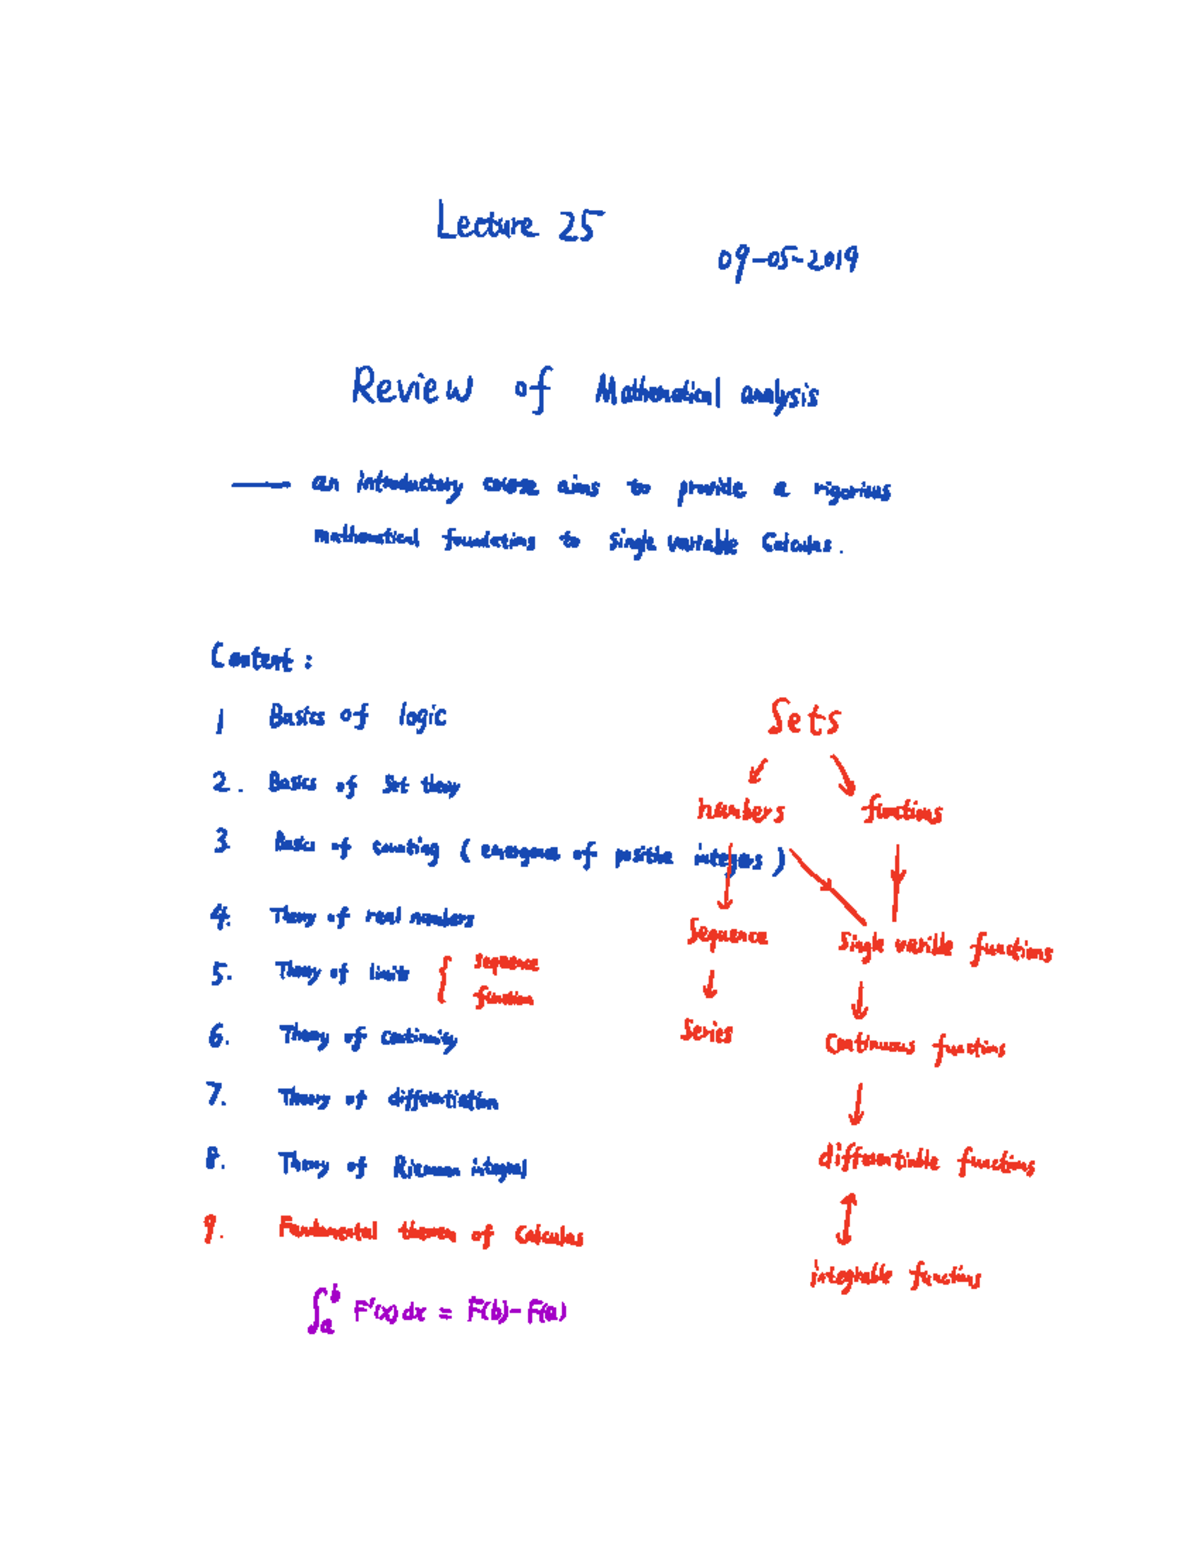 Lecture 25
09-05-2019
Review of Mathematical analysis
— an introductory course aims to provide a rigorious
mathematical foundations to Single variable Calculus.
Content:
1 Basics of logic
2. Basics of Set theory
3 Basics of counting (emergence of positive integers)
4. Theory of real numbers
5. Theory of limits { sequence
function
6. Theory of continuity
7. Theory of differentiation
8. Theory of Riemann integral
9. Fundamental theorem of Calculus
∫_a^b F'(x) dx = F(b) - F(a)
Sets
numbers functions
Sequence Single varible functions
Series Continuous functions
differentiable functions
integrable functions